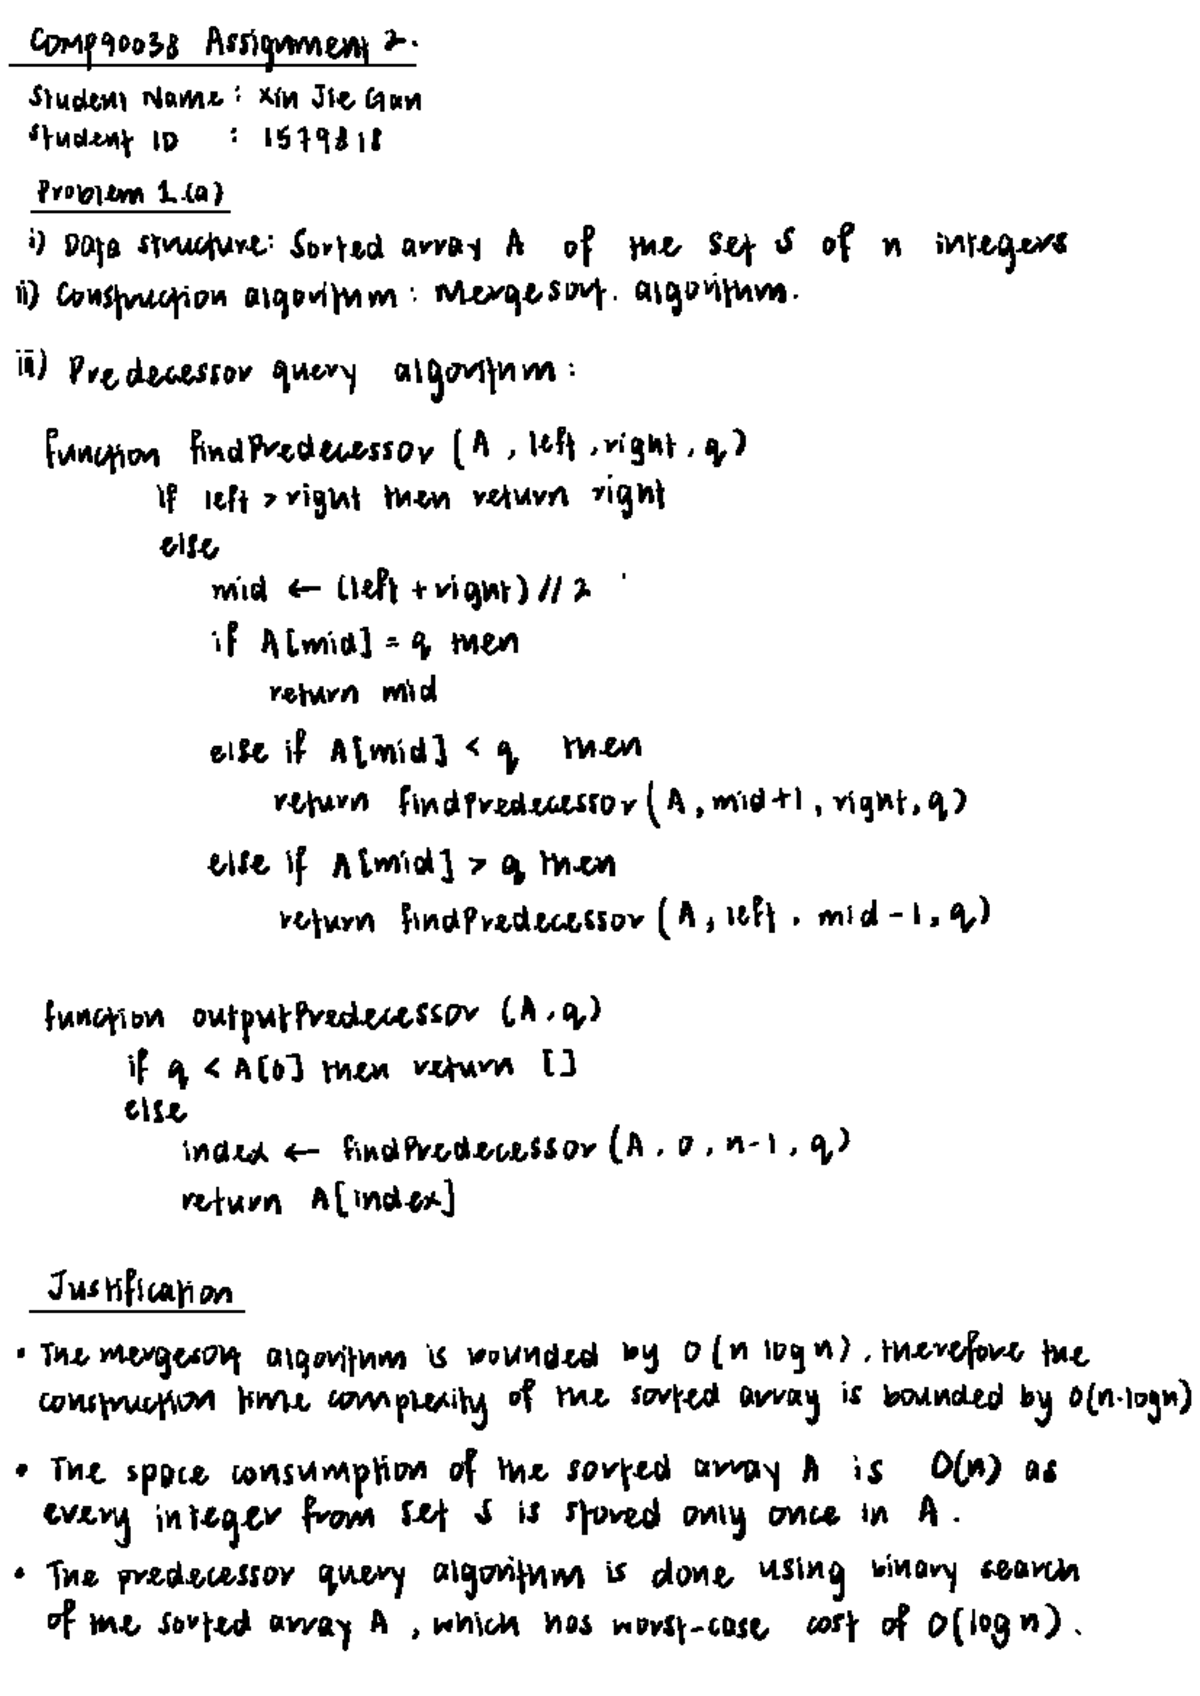 COMP90038 Assignment 2.
Student Name : Xin Jie Gan
Student ID : 1579818
Problem 1.(a)
i) Data structure: Sorted array A of the set S of n integers
ii) Construction algorithm : Mergesort. algorithm.
iii) Predecessor query algorithm :
function findPredecessor (A, left, right, q)
if left > right then return right
else
mid ← (left + right) // 2
if A[mid] = q then
return mid
else if A[mid] < q then
return findPredecessor (A, mid+1, right, q)
else if A[mid] > q then
return findPredecessor (A, left, mid-1, q)
function outputPredecessor (A, q)
if q < A[0] then return []
else
index ← findPredecessor (A, 0, n-1, q)
return A[index]
Justification
• The mergesort algorithm is bounded by O(n log n), therefore the
construction time complexity of the sorted array is bounded by O(n·logn)
• The space consumption of the sorted array A is O(n) as
every integer from set S is stored only once in A.
• The predecessor query algorithm is done using binary search
of the sorted array A, which has worst-case cost of O(log n).